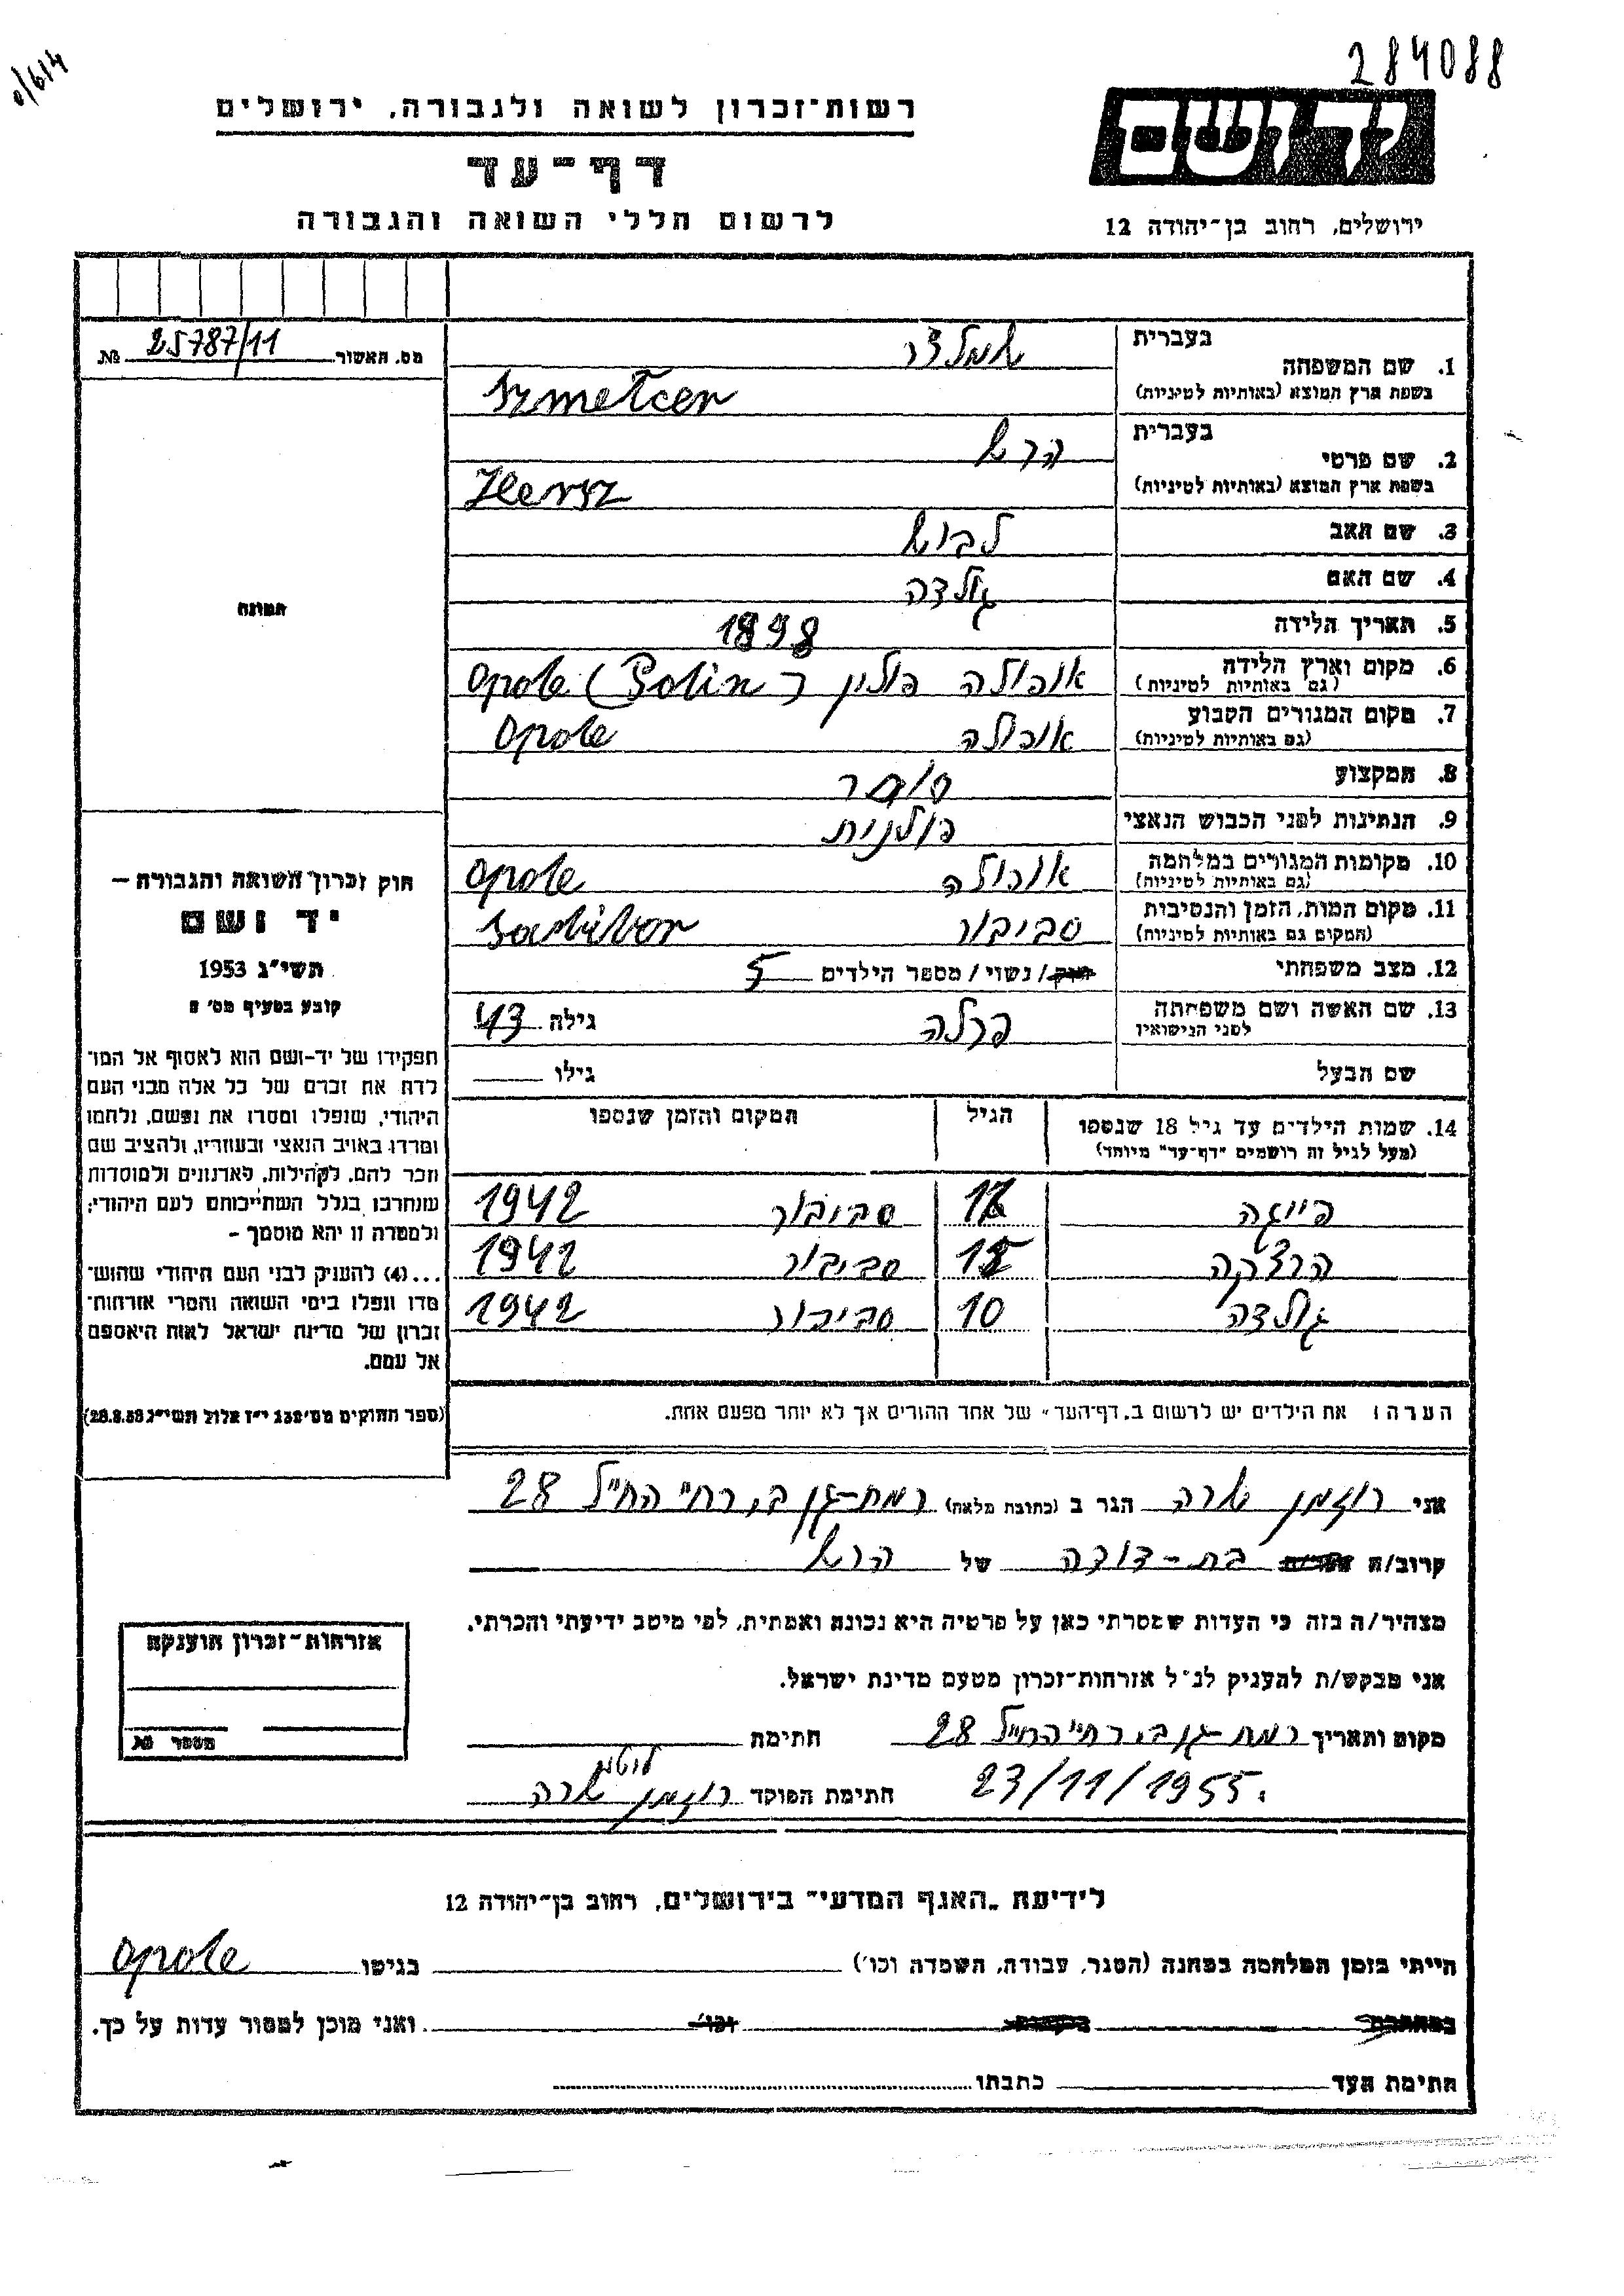 284088
0/614
יד ושם
ירושלים, רחוב בן־יהודה 12
רשות־זכרון לשואה ולגבורה, ירושלים
דף־עד
לרשום חללי השואה והגבורה
מס. האשור 25787/11 №
1. שם המשפחה
בעברית שמלצר
בשפת ארץ המוצא (באותיות לטיניות) Szmelcer
2. שם פרטי
בעברית הרש
בשפת ארץ המוצא (באותיות לטיניות) Hersz
3. שם האב לבוש
4. שם האם גולדה
5. תאריך הלידה 1898
6. מקום וארץ הלידה (גם באותיות לטיניות) אופולה פולין Opole (Polin)
7. מקום המגורים הקבוע (גם באותיות לטיניות) אופולה Opole
8. המקצוע סוחר
9. הנתינות לפני הכבוש הנאצי פולנית
10. מקומות המגורים במלחמה (גם באותיות לטיניות) אופולה Opole
11. מקום המות, הזמן והנסיבות (המקום גם באותיות לטיניות) סביבור
12. מצב משפחתי רווק / נשוי / מספר הילדים 5
13. שם האשה ושם משפחתה לפני הנישואין פרלה גילה 43
שם הבעל גילו
14. שמות הילדים עד גיל 18 שנספו הגיל המקום והזמן שנספו
(מעל לגיל זה רושמים "דף־עד" מיוחד)
פייגה סביבור 1942
הרצקה סביבור 1942
גולדה 10 סביבור 1942
הערה: את הילדים יש לרשום ב„דף־העד" של אחד ההורים אך לא יותר מפעם אחת.
תמונה
חוק זכרון השואה והגבורה —
יד ושם
תשי"ג 1953
קובע בסעיף מס' 2
תפקידו של יד־ושם הוא לאסוף אל המו־
לדת את זכרם של כל אלה מבני העם
היהודי, שנפלו ומסרו את נפשם, נלחמו
ומרדו באויב הנאצי ובעוזריו, ולהציב שם
וזכר להם, לקהילות, לארגונים ולמוסדות
שנחרבו בגלל השתייכותם לעם היהודי;
ולמטרה זו יהא מוסמך –
...(4) להעניק לבני העם היהודי שהוש־
מדו ונפלו בימי השואה והמרי אזרחות־
זכרון של מדינת ישראל לאות היאספם
אל עמם.
(ספר החוקים מס' 132 י"ז אלול תשי"ג 28.8.53)
אני רוזמן שרה הגר ב (כתובת מלאה) רמת-גן ב', רח' החי"ל 28
קרוב/ה בת-דודה של הרש
מצהיר/ה בזה כי העדות שמסרתי כאן על פרטיה היא נכונה ואמתית, לפי מיטב ידיעתי והכרתי.
אני מבקש/ת להעניק לנ"ל אזרחות־זכרון מטעם מדינת ישראל.
מקום ותאריך רמת-גן ב', רח' החי"ל 28 חתימת
23/11/1955. חתימת הפוקד רוזמן שרה
אזרחות־זכרון הוענקה
מספר №
לידיעת „האגף המדעי" בירושלים, רחוב בן־יהודה 12
הייתי בזמן המלחמה במחנה (הסגר, עבודה, השמדה וכו') בגיטו Opole
במחתרת וכו' ואני מוכן למסור עדות על כך.
חתימת העד כתבתו